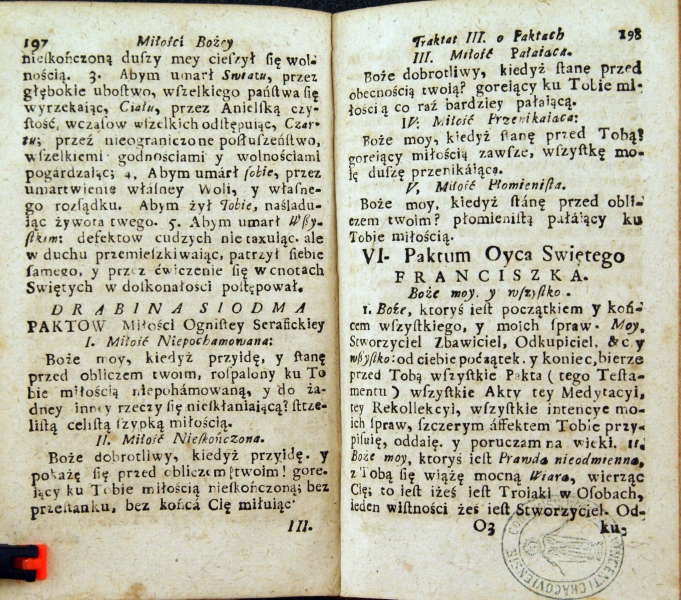 197 Miłości Bożey
nieskończoną duszy mey cieszył się wol-
nością. 3. Abym umarł Swiatu, przez
głębokie ubostwo, wszelkiego państwa się
wyrzekaiąc, Ciału, przez Anielską czy-
stość, wczasow wszelkich odstępuiąc, Czar-
tu; przez nieograniczone posłuszeństwo,
wszelkiemi godnosciami y wolnościami
pogardzaiąc; 4. Abym umárł sobie, przez
umartwienie włásney Woli, y własne-
go rozsądku. Abym żył Tobie, naśladu-
iąc żywota twego. 5. Abym umarł Wszy-
stkim: defektow cudzych nie taxuiąc, ale
w duchu przemieszkiwaiąc, patrzył siebie
samego, y przez ćwiczenie się w cnotach
Swiętych w doskonałości postępował.
DRABINA SIODMA
PAKTOW Miłości Ognistey Serafickiey
I. Miłość Niepohamowana:
Boże moy, kiedyż przyidę, y stanę
przed obliczem twoim, rospalony ku To
bie miłością niepohámowaną, y do ża-
dney inney rzeczy się nieskłaniaiącą? strze-
listą celistą szypką miłością.
II. Miłość Nieskończona.
Boże dobrotliwy, kiedyż przyidę. y
pokażę się przed obliczem twoim! gore-
iący ku Tobie miłością nieskończoną; bez
przestanku, bez końcá Cię miłuiąc
III.
Traktat III. o Paktach 198
III. Miłość Pałaiąca.
Boże dobrotliwy, kiedyż stanę przed
obecnością twoią? goreiący ku Tobie mi-
łością co raz bardziey pałaiącą.
IV: Miłość Przenikaiąca:
Boże moy, kiedyż stanę przed Tobą?
goreiący miłością zawsze, wszystkę mo-
ię duszę przenikáiącą.
V, Miłość Płomienista.
Boże moy, kiedyż stánę przed obli-
czem twoim? płomienistą pałáiący ku
Tobie miłością.
VI- Paktum Oyca Swiętego
FRANCISZKA.
Boże moy. y wszystko.
1. Boże, ktoryś iest początkiem y koń-
cem wszystkiego, y moich spraw. Moy,
Stworzyciel Zbawiciel, Odkupiciel, &c y
wszystko: od ciebie początek. y koniec, bierze
przed Tobą wszystkie Pakta ( tego Testa-
mentu ) wszystkie Akty tey Medytacyi,
tey Rekollekcyi, wszystkie intencye mo-
ich spraw, szczerym áffektem Tobie przy-
pisuię, oddaię. y poruczam na wieki. 11.
Boże moy, ktoryś iest Prawda nieodmienna,
z Tobą się wiążę mocną Wiarą, wierząc
Cię; to iest iżeś iest Troiaki w Osobach,
ieden w istności żeś iest Stworzyciel. Od-
O3 ku-
VINCENTI CRACOVIENSIS